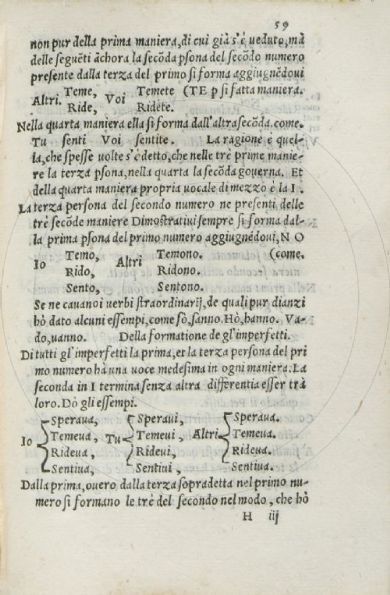 59
non pur della prima maniera, di cui già s'è veduto, mà
delle seguēti āchora la secōda psona del secōdo numero
presente dalla terza del primo si forma aggiugnēdovi
Altri. Teme, Voi Temete (TE p si fatta maniera.
Ride, Ridete.
Nella quarta maniera ella si forma dall'altra secōda. come.
Tu senti Voi sentite. La ragione e quel-
la, che spesse volte s'è detto, che nelle trè prime manie-
re la terza psona, nella quarta la secōda governa. Et
della quarta maniera propria vocale di mezzo è la I.
La terza persona del secondo numero ne presenti delle
trè secōde maniere Dimostrativi sempre si forma dal-
la prima psona del primo numero aggiugnēdovi, N O
Io Temo, Altri Temono. (come.
Rido, Ridono.
Sento, Sentono.
Se ne cavanoi verbi straordinarij, de quali pur dianzi
hò dato alcuni essempi, come sò, sanno. Hò, hanno. Va-
do, vanno. Della formatione de gl'imperfetti.
Di tutti gl'imperfetti la prima, et la terza persona del pri
mo numero hà una voce medesima in ogni maniera. La
seconda in I termina senza altra differentia esser trà
loro. Dò gli essempi.
Io Sperava, Tu Speravi, Altri Sperava.
Temeva, Temevi, Temeva.
Rideva, Ridevi, Rideva.
Sentiva, Sentivi, Sentiva.
Dalla prima, overo dalla terza sopradetta nel primo nu-
mero si formano le trè del secondo nel modo, che hò
H iij